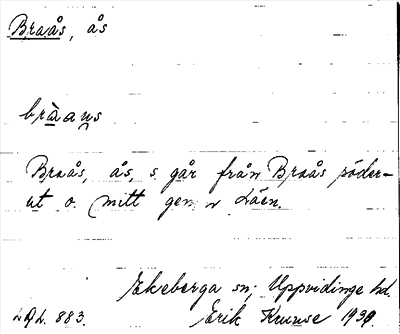 Braås, ås
bràaŋs
Braås, ås, s. går från Braås söder-
ut o. mitt gen. Läen.
Ekeberga sn; Uppvidinge hd.
883. Erik Kruuse 1939